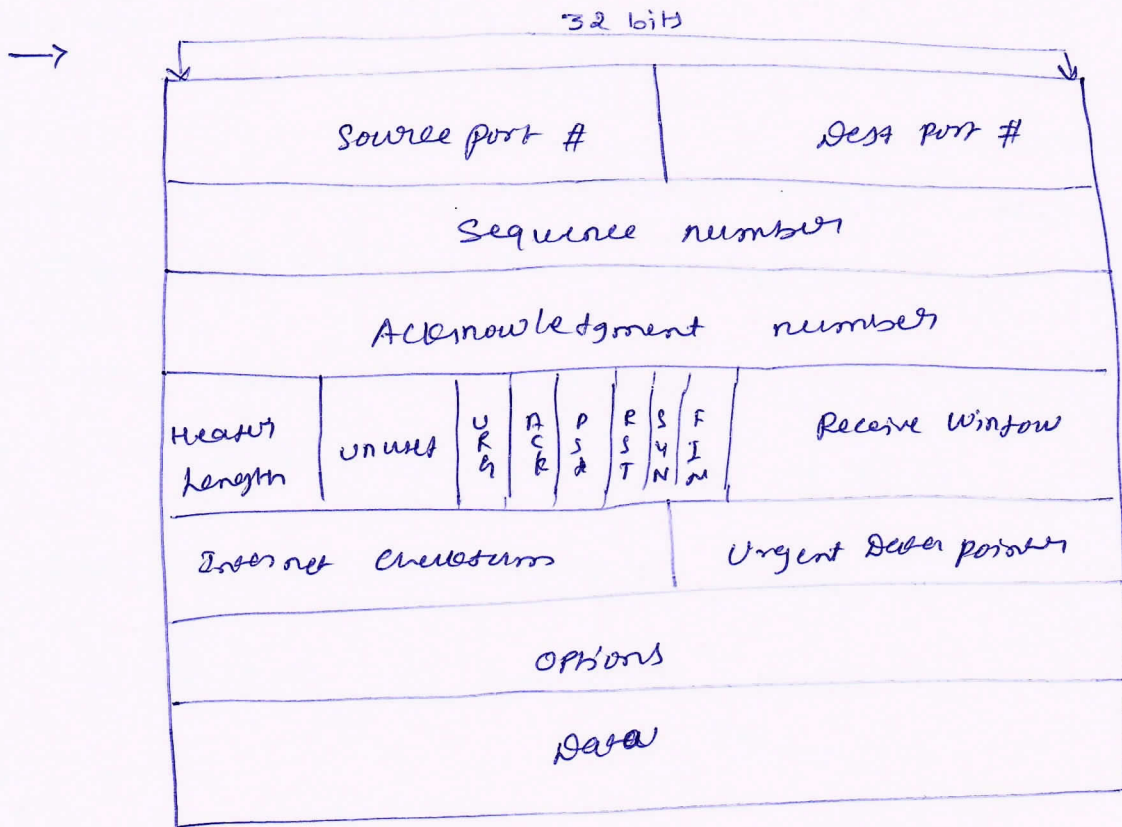 32 bits
Source port # Dest port #
Sequence number
Acknowledgment number
Header Length unused URG ACK PSH RST SYN FIN Receive Window
Internet checksum Urgent Data pointer
Options
Data